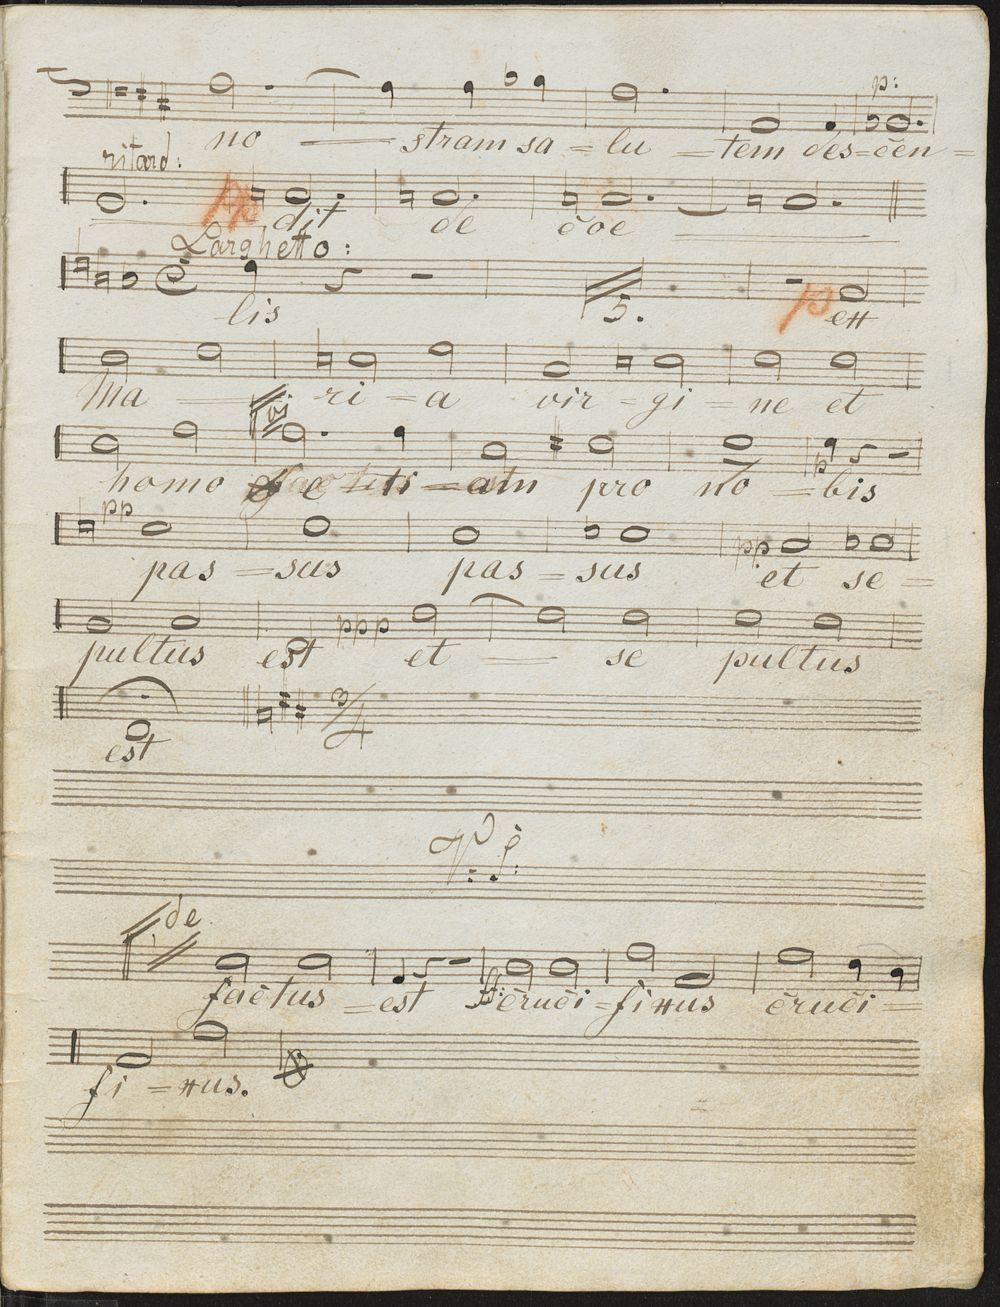 p:
no — stram sa = lu = tem des = cen =
ritard:
pp dit de coe
Larghetto:
lis 5. p ex
Ma ri = a vir = gi = ne et
homo ti = am pro no = bis
pp
pas = sus pas = sus pp et se =
pultus est ppp et se pultus
3/4
est
V: S:
de
factus = est cruci = fixus cruci =
fi = xus.